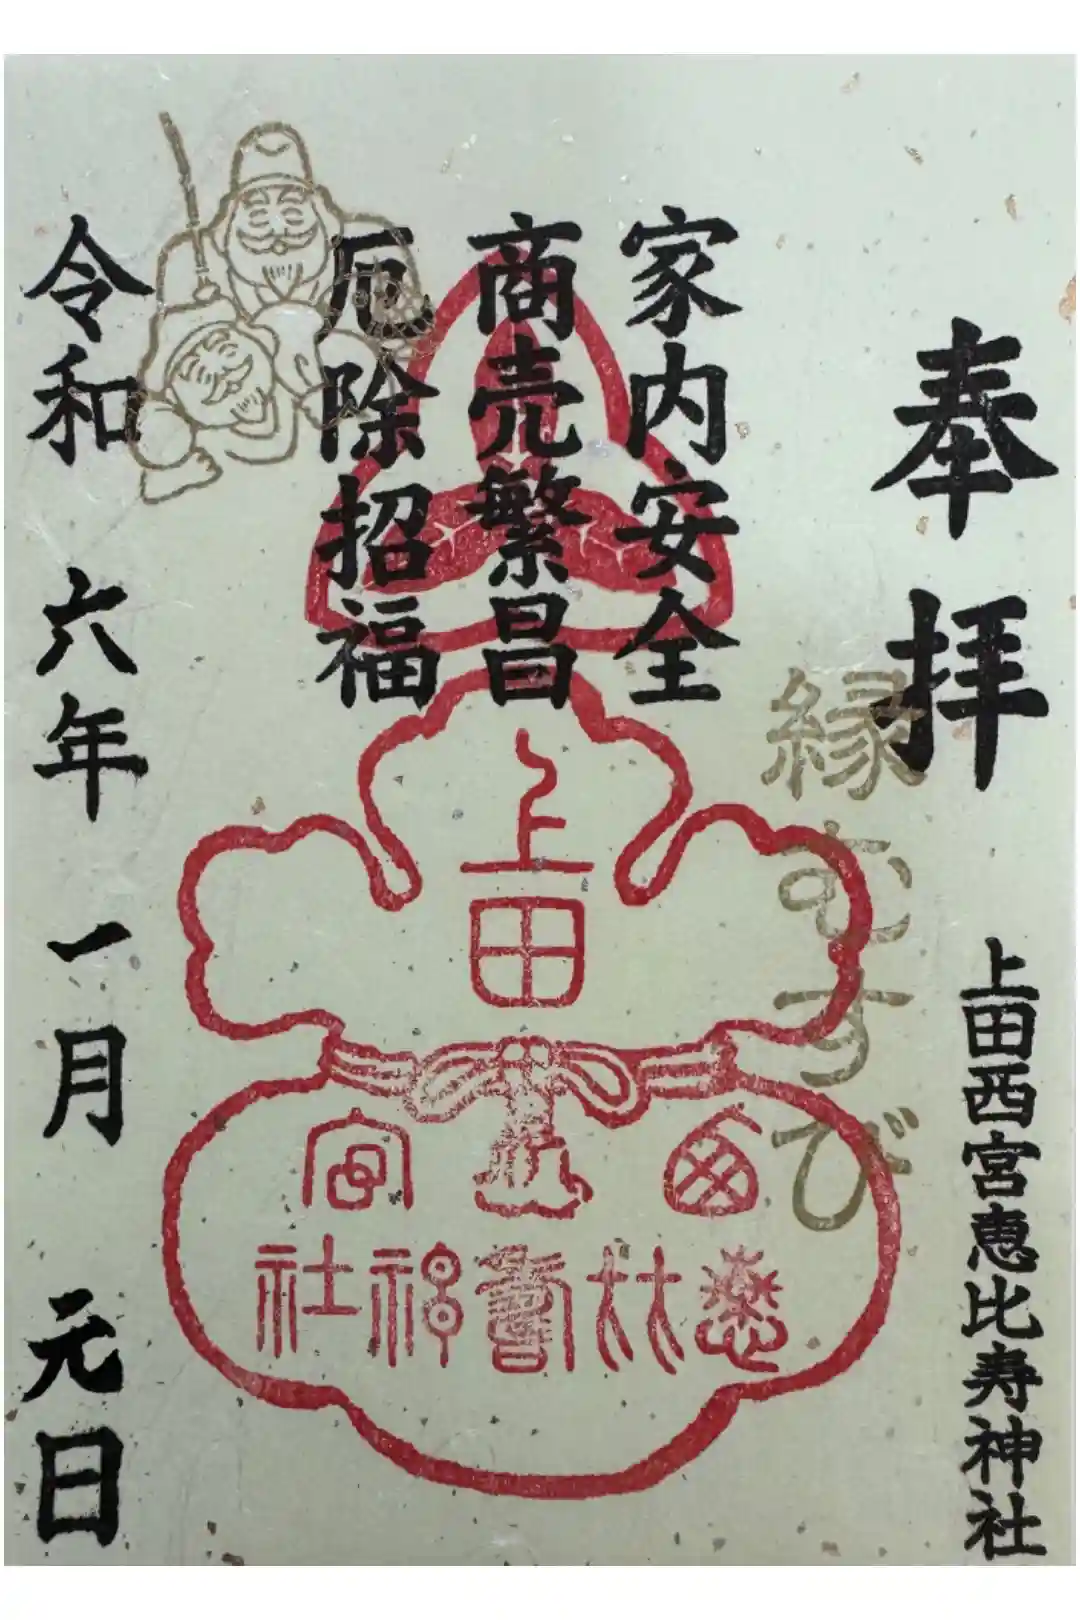 奉拝
上田西宮恵比寿神社
縁むすび
家内安全
商売繁昌
厄除招福
上田
西宮
恵比寿神社
令和六年一月元日